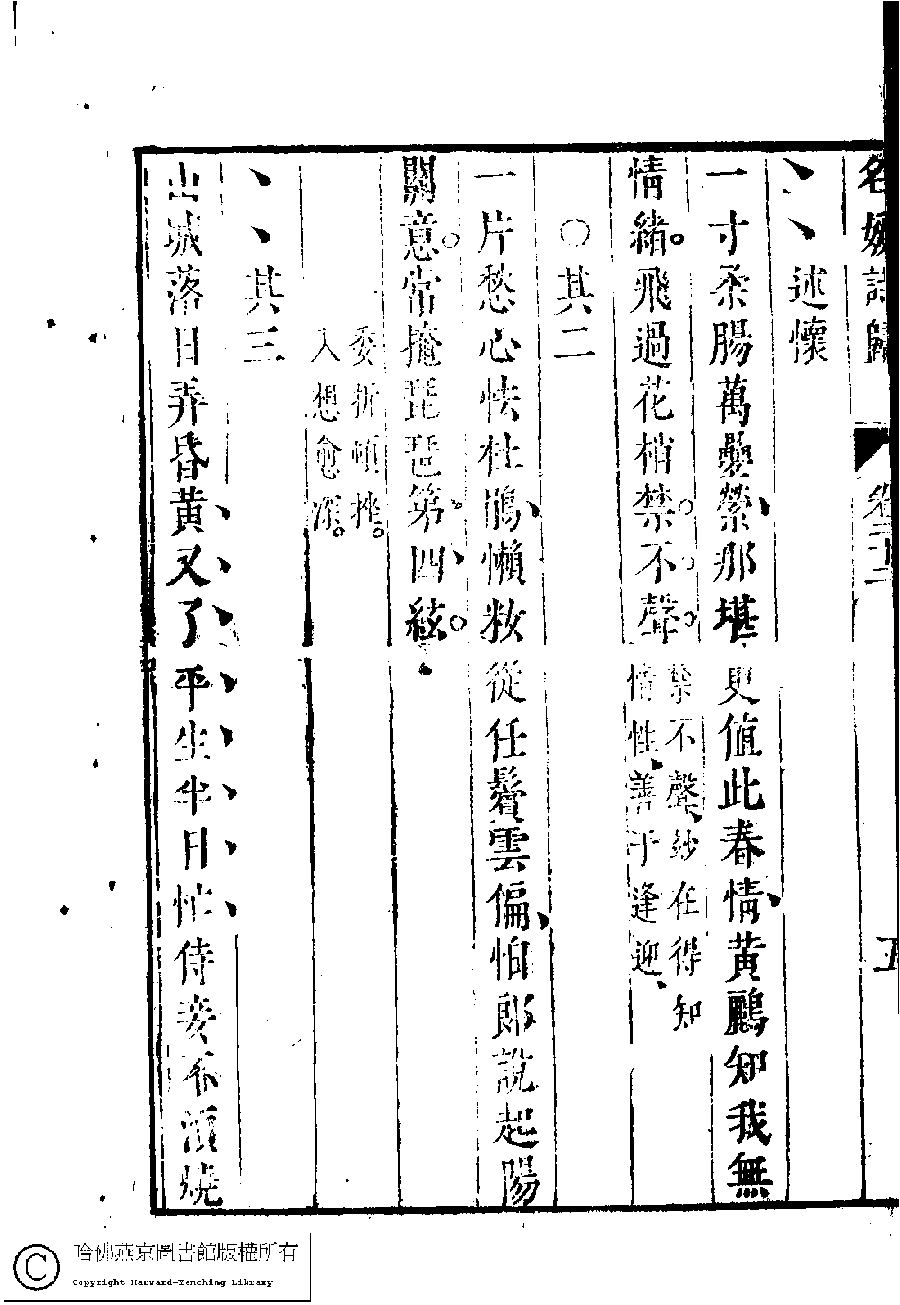 名媛詩歸 卷三十二 五
述懷
一寸柔腸萬疊縈那堪更值此春情黃鸝知我無
情緒飛過花梢禁不聲禁不聲妙在得知情性善于逢迎
其二
一片愁心怯杜鵑懶妝從任鬢雲偏怕郎說起陽
關意常掩琵琶第四絃
委折頓挫
入想愈深
其三
山城落日弄昏黃又了平生半日忙侍妾不須燒
哈佛燕京圖書館版權所有
Copyright Harvard-Yenching Library